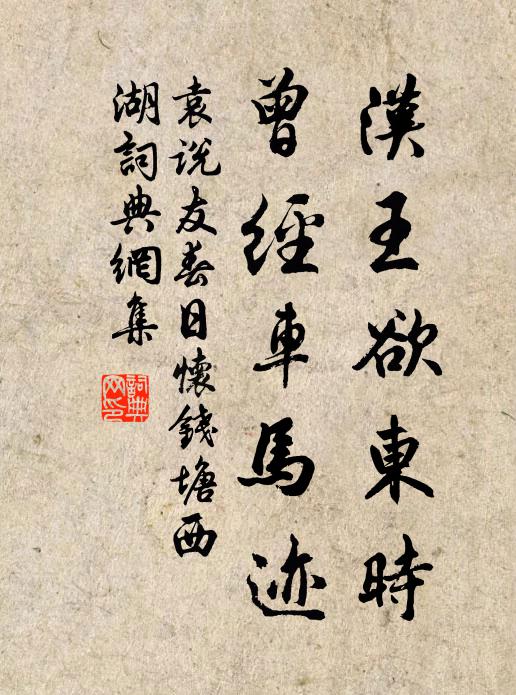 漢王欲東時
曾經車馬迹
袁說友春日懷錢塘西
湖詞典網集
詞典
网印